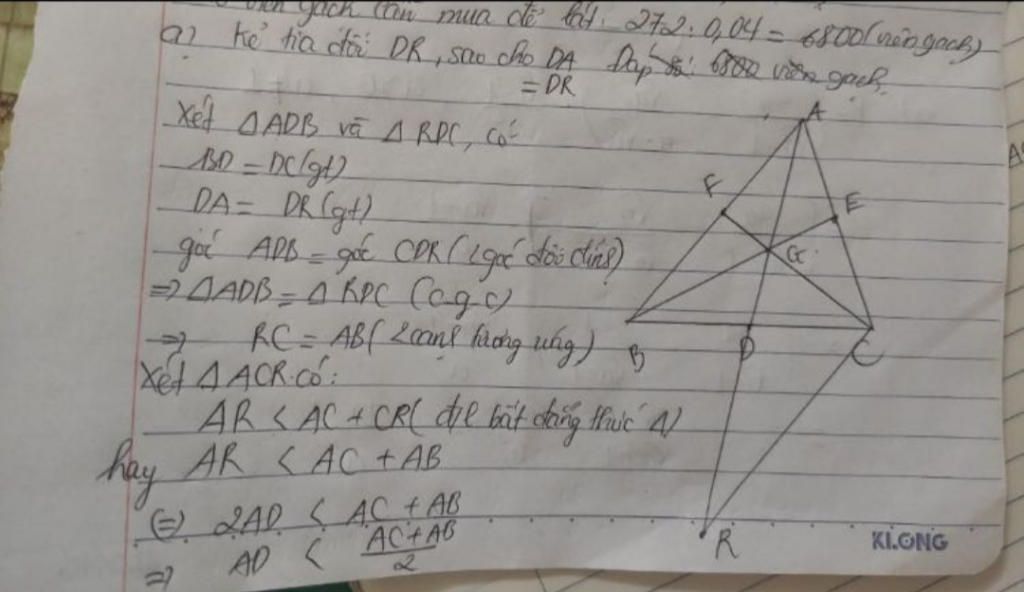 viên gạch cần mua để lát: 272:0,04 = 6800 (viên gạch)
a) Kẻ tia đối DR, sao cho DA Đáp số: 6800 viên gạch.
= DR
Xét △ADB và △RDC, có:
BD = DC (gt)
DA = DR (gt)
góc ADB = góc CDR (2 góc đối đỉnh)
=> △ADB = △RDC (c-g-c)
=> RC = AB (2 cạnh tương ứng)
Xét △ACR có:
AR < AC + CR (đ/l bất đẳng thức △)
hay AR < AC + AB
(=) 2AD < AC + AB
=> AD < AC+AB
2
A
F
E
G
B
D
C
R
KLONG